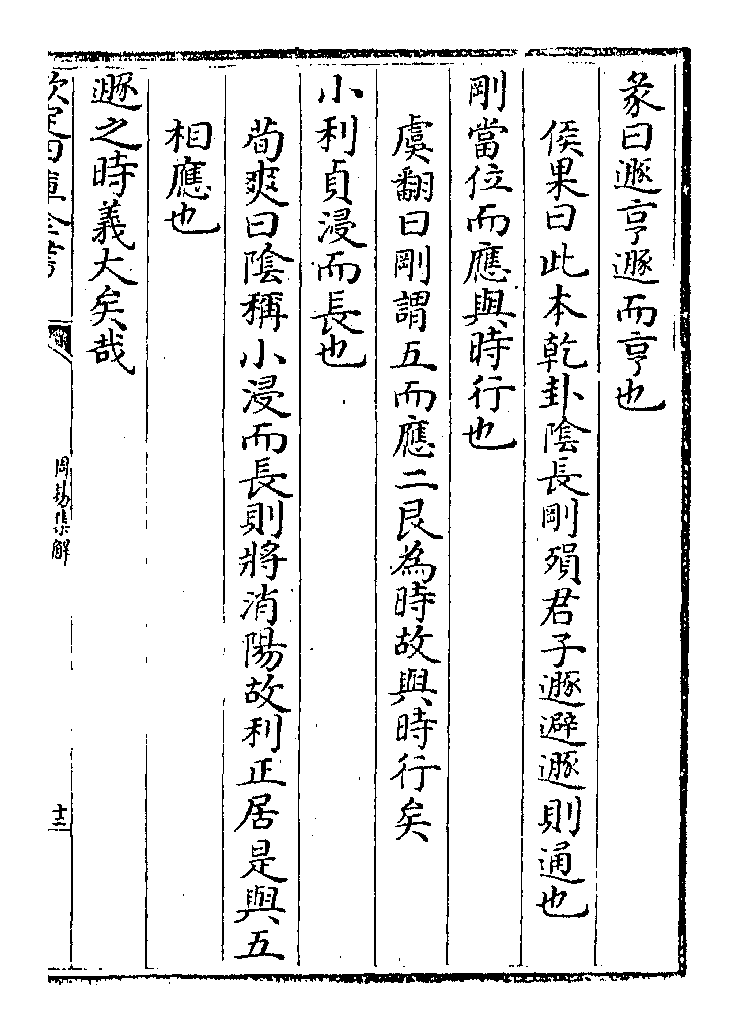 彖曰遯亨遯而亨也
侯果曰此本乾卦陰長剛殞君子遯避遯則通也
剛當位而應與時行也
虞翻曰剛謂五而應二艮為時故與時行矣
小利貞浸而長也
荀爽曰陰稱小浸而長則將消陽故利正居是與五
相應也
遯之時義大矣哉
欽定四庫全書
周易集解
十三